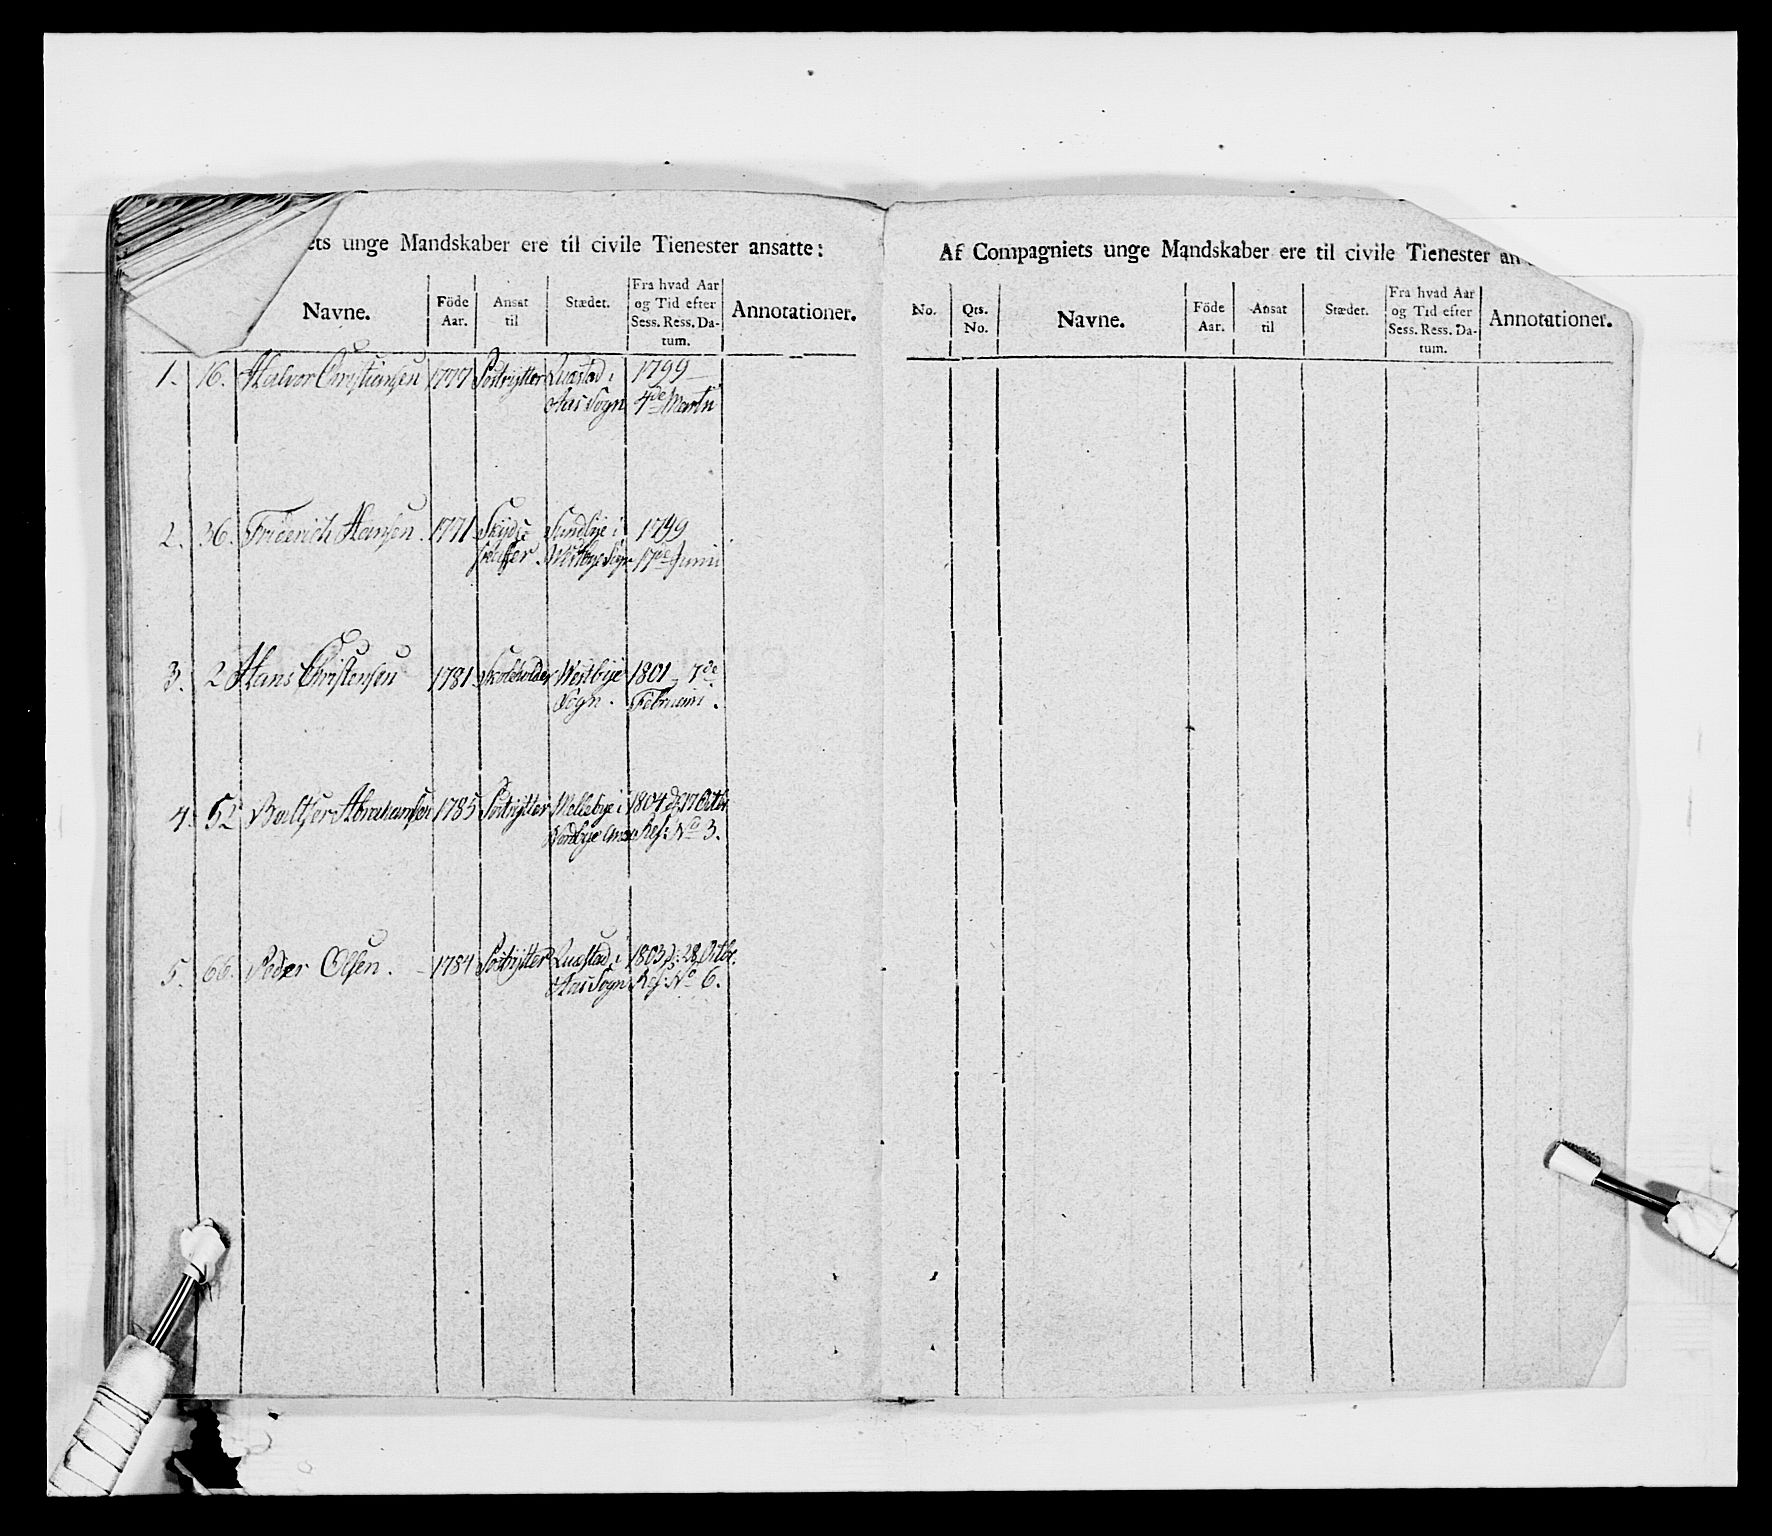 ets unge Mandskaber ere til civile Tienester ansatte:
Navne. Föde Aar. Ansat til Stædet. Fra hvad Aar og Tid efter Sess. Ress. Datum. Annotationer.
1. 16. Halvor Christiansen 1777 Postrytter Quastad i 1799
Aas Sogn 4de Martii
2. 36. Friderich Hansen. 1771 Skyds- Sundbye i 1799
skaffer. Westbye Sogn 17de Junii
3. 2 Hans Christensen 1781 Skoleholder Westbye 1801 7de
Sogn. Februarii.
4. 52 Baltser Abrahamsen 1785 Postrytter Mellebye i 1804 d. 17 Octbr
Nordbye Anex Res: No 3.
5. 66. Peder Olsen. 1784 Postrytter Quastad i 1803 d: 28 Octbr.
Aas Sogn Res: No 6.
Af Compagniets unge Mandskaber ere til civile Tienester an
No. Qts. No. Navne. Föde Aar. Ansat til Stædet. Fra hvad Aar og Tid efter Sess. Ress. Datum. Annotationer.